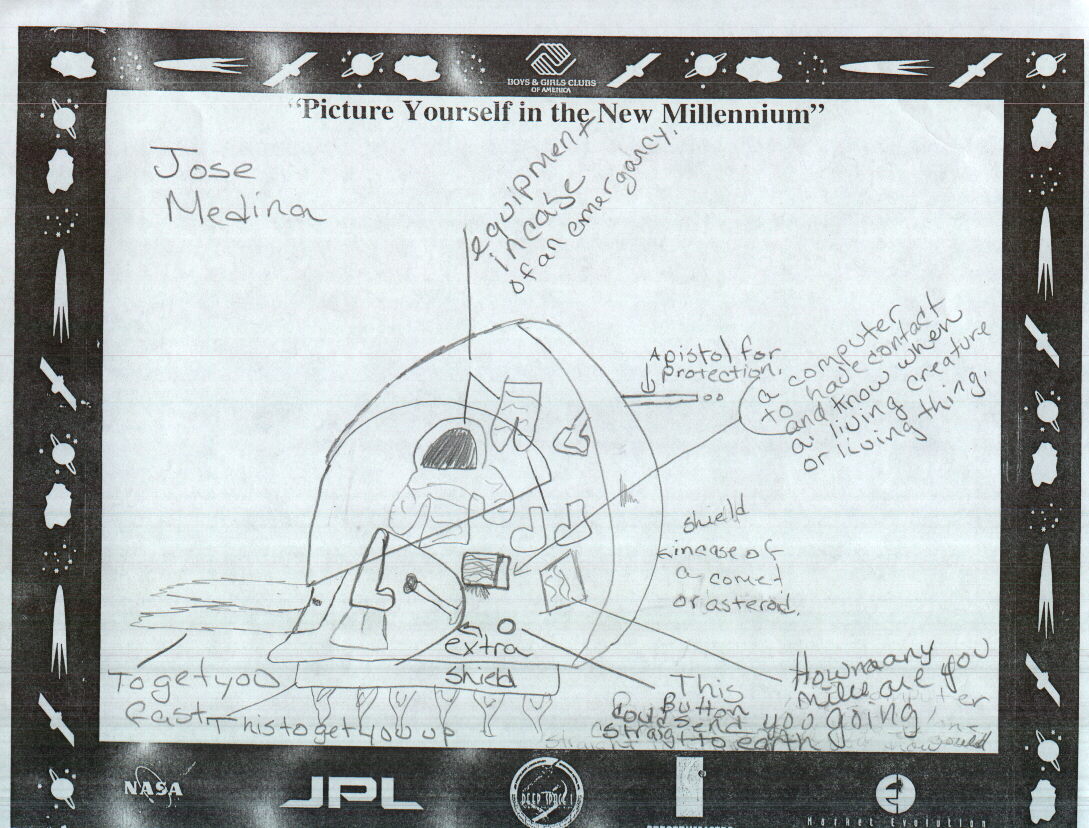 BOYS & GIRLS CLUBS
OF AMERICA
"Picture Yourself in the New Millennium"
Jose
Medina
equipment
incase
of an emergancy.
A pistol for
protection.
a computer
to have contact
and know when
a living creature
or living thing.
shield
incase of
a comet
or asterod.
extra
shield
To get you
fast
This to get you up
This
Button
could send
straight to earth
How many
miles are you
you going
would
NASA
JPL
DEEP SPACE 1
Market Evolution